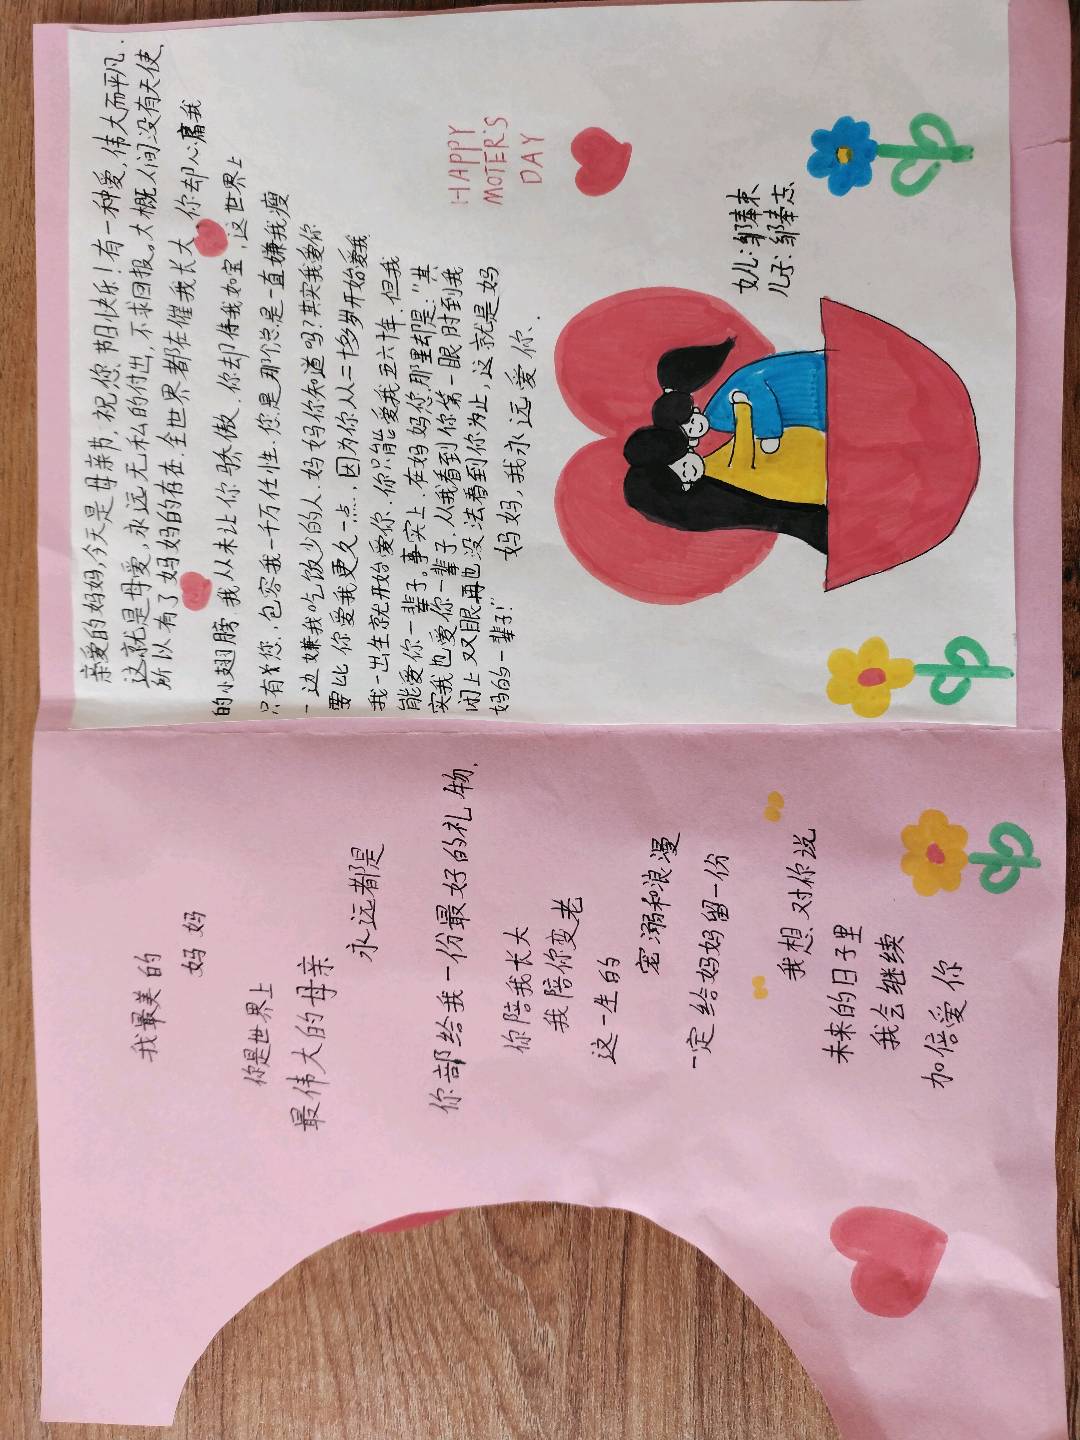 我最美的
妈妈
你是世界上
最伟大的母亲
永远都是
你部给我一份最好的礼物,
你陪我长大
我陪你变老
这一生的
宠溺和浪漫
一定给妈妈留一份
"我想对你说"
未来的日子里
我会继续
加倍爱你
亲爱的妈妈,今天是母亲节,祝您节日快乐!有一种爱,伟大而平凡.
这就是母爱,永远无私的付出,不求回报。大概人间没有天使,
所以有了妈妈的存在.全世界都在催我长大,你却心痛我
的小翅膀,我从未让你骄傲.你却待我如宝,这世界上
只有您,包容我一千万任性.您是那个总是一直嫌我瘦
一边嫌我吃饭少的人.妈妈你知道吗?其实我爱你
要比你爱我更久一点.因为你从二十多岁开始爱我
我一出生就开始爱你.你只能爱我五六十年.但我
能爱你一辈子。事实上.在妈妈您那里却是:"其
实我也爱你一辈子.从我看到你第一眼时到我
闭上双眼再也没法看到你为止,这就是妈
妈的一辈子!"
妈妈,我永远爱你.
HAPPY
MOTER'S
DAY
女儿:邹奉束
儿子:邹奉志